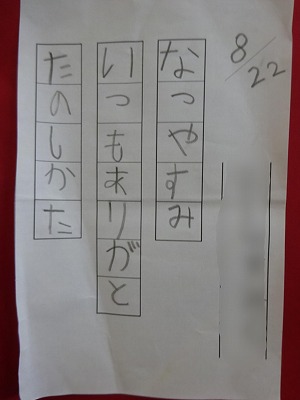 8/22
なつやすみ
いつもありがと
たのしかた